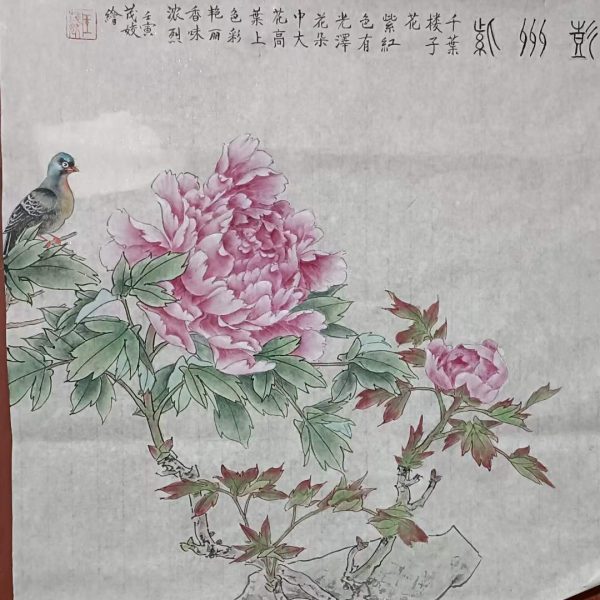 彭州紫
千葉
楼子
花
紫紅
色有
光澤
花朵
中大
花高
葉上
色彩
艳丽
香味
浓烈
壬寅
茂
繪